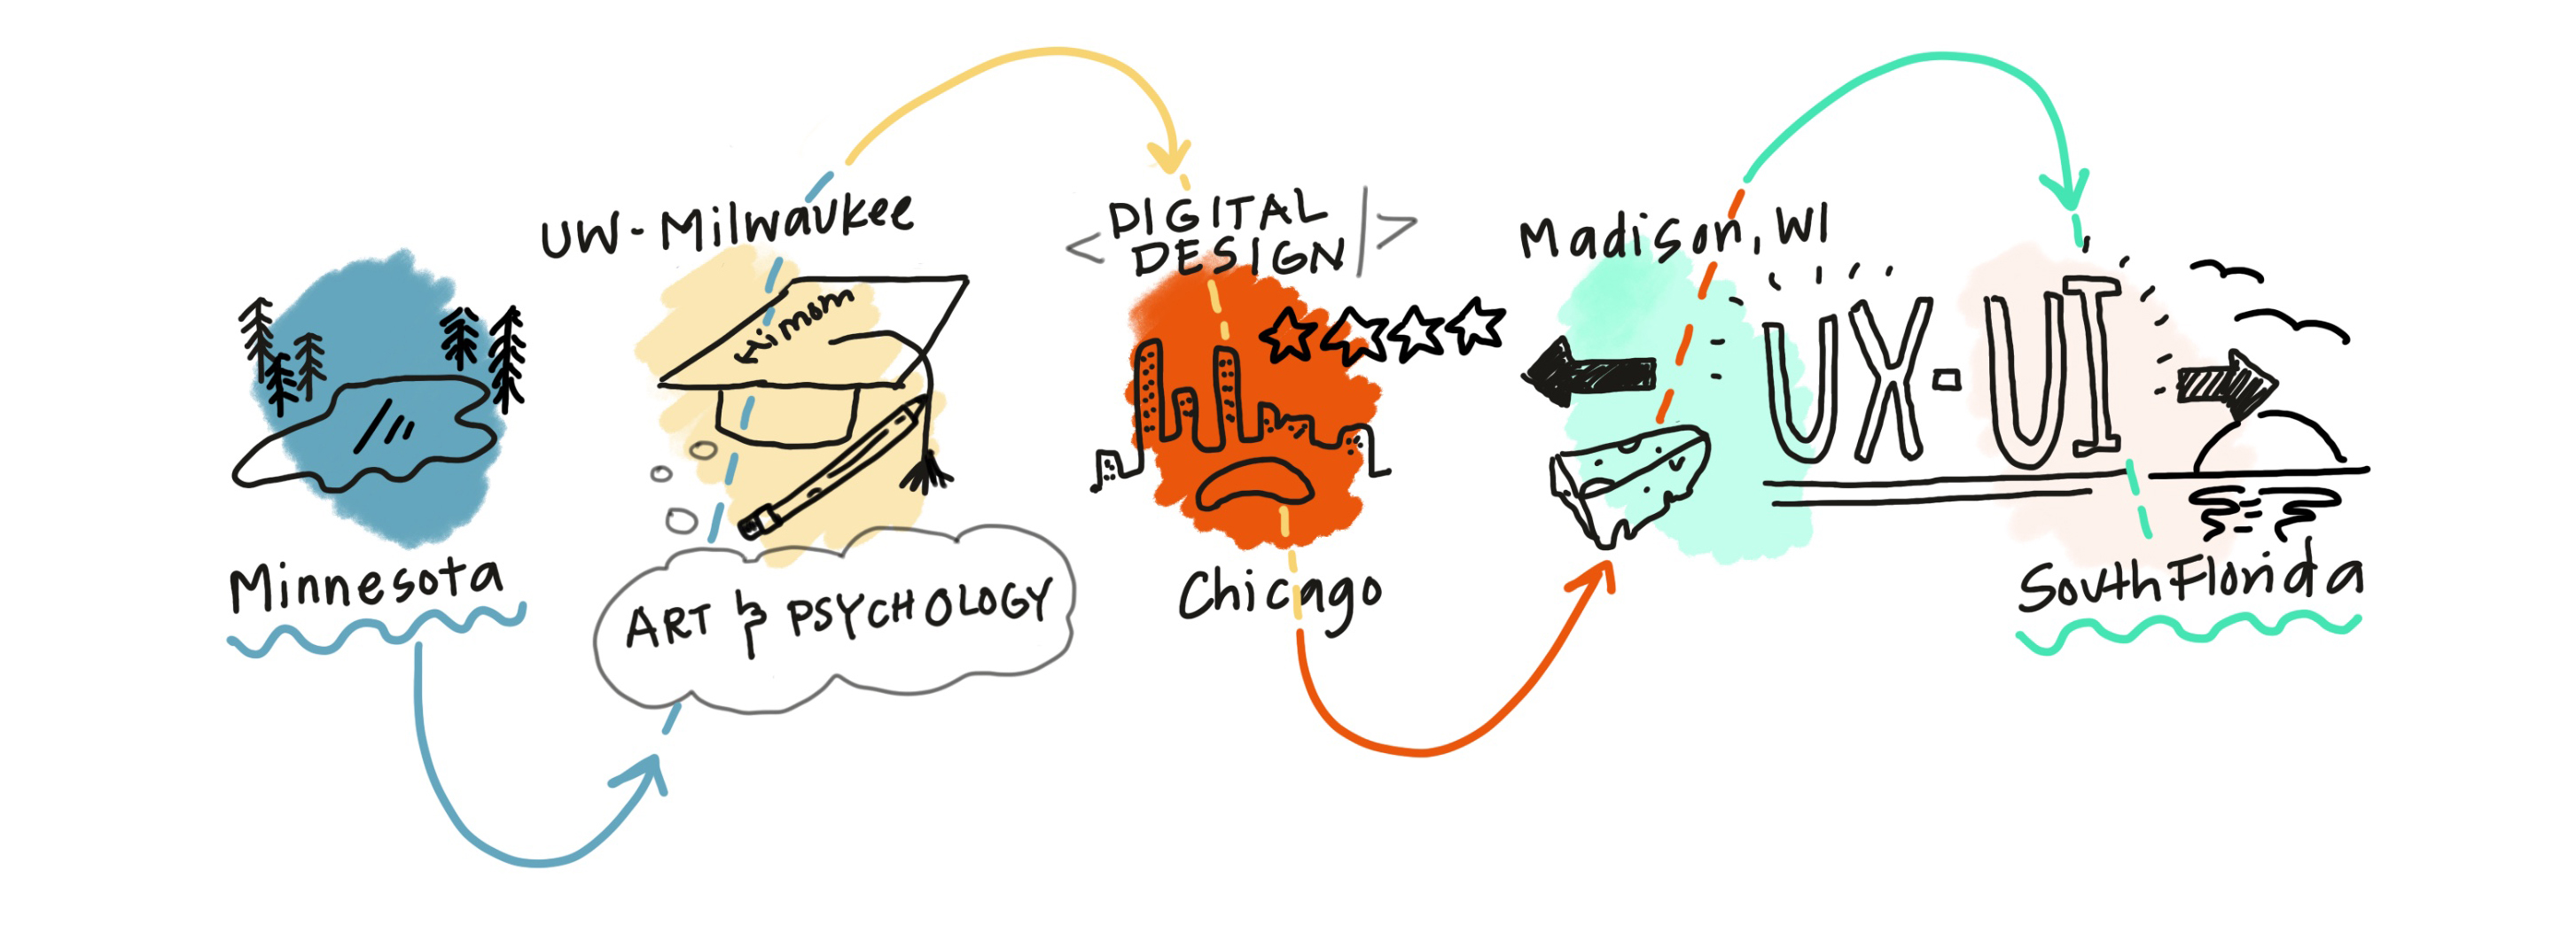 Minnesota
UW-Milwaukee
Hi mom
ART & PSYCHOLOGY
< DIGITAL
DESIGN />
Chicago
Madison, WI
UX-UI
South Florida